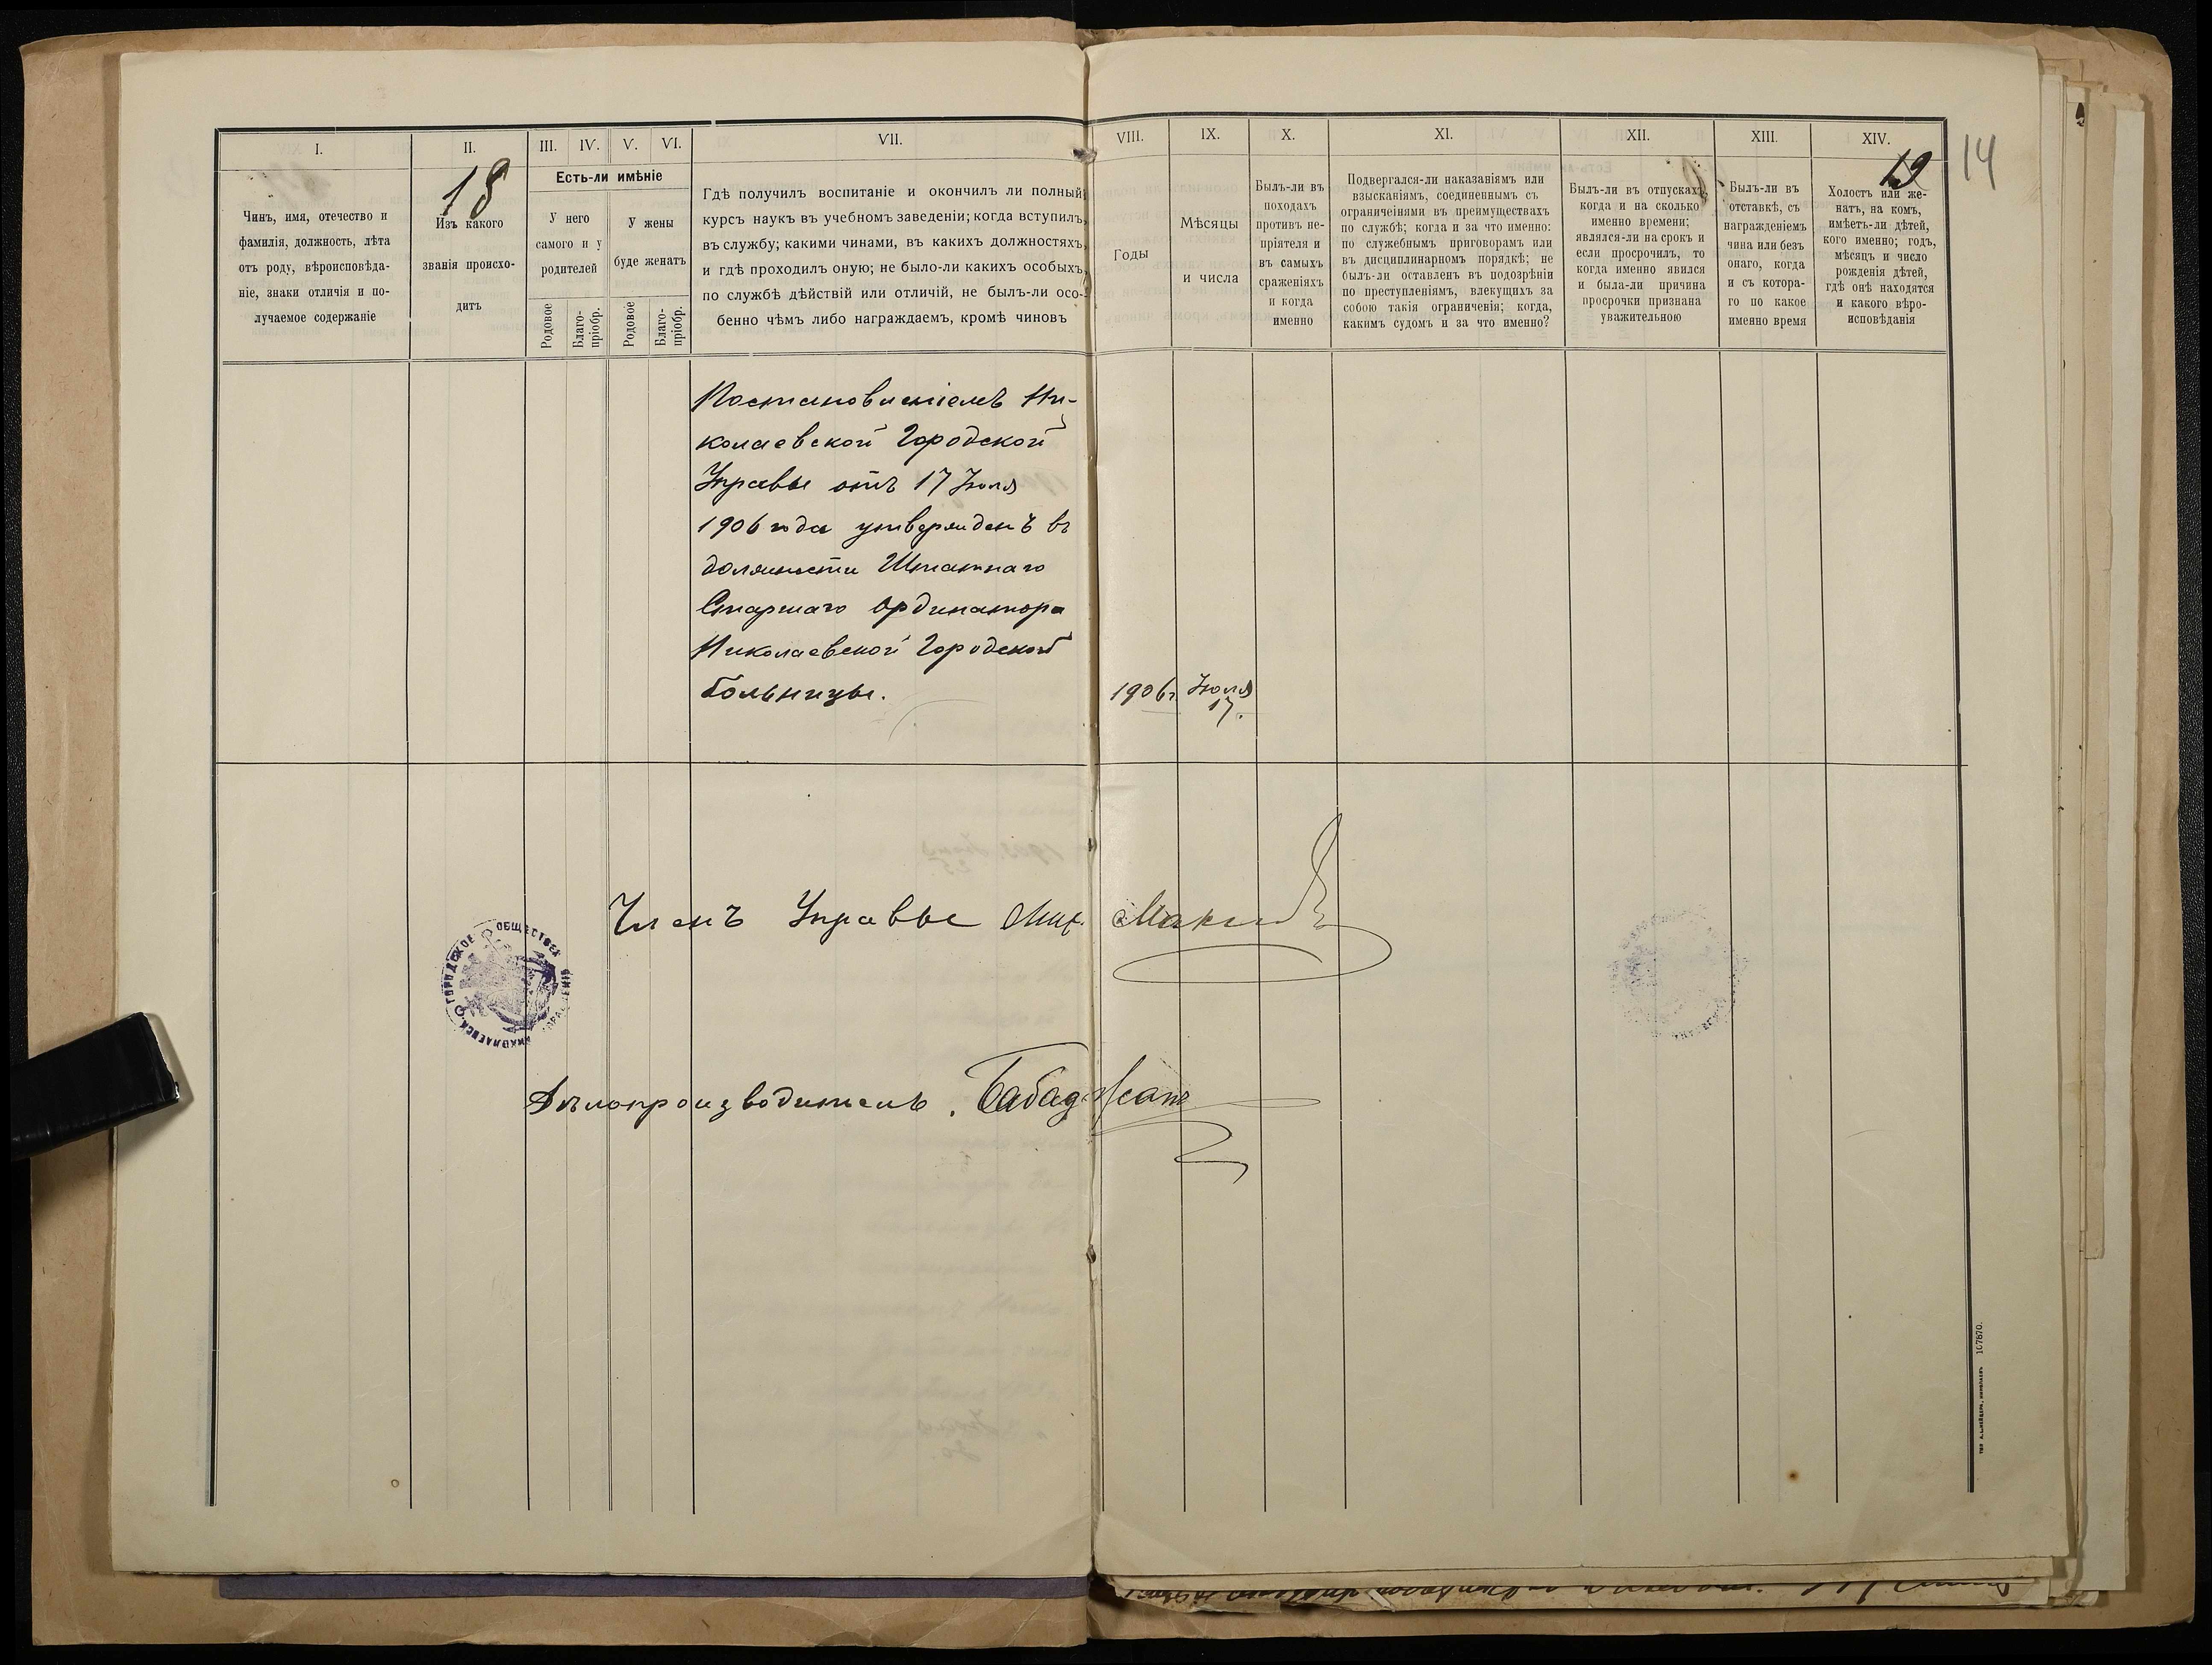 I.
Чинъ, имя, отечество и
фамилія, должность, лѣта
отъ роду, вѣроисповѣда-
ніе, знаки отличія и по-
лучаемое содержаніе
II.
18
Изъ какого
званія происхо-
дитъ
III. IV. V. VI.
Есть-ли имѣніе
У него
самого и у
родителей
У жены
буде женатъ
Родовое
Благо-
пріобр.
Родовое
Благо-
пріобр.
VII.
Гдѣ получилъ воспитаніе и окончилъ ли полный
курсъ наукъ въ учебномъ заведеніи; когда вступилъ
въ службу; какими чинами, въ какихъ должностяхъ
и гдѣ проходилъ оную; не было-ли какихъ особыхъ
по службѣ дѣйствій или отличій, не былъ-ли осо-
бенно чѣмъ либо награждаемъ, кромѣ чиновъ
VIII.
Годы
IX.
Мѣсяцы
и числа
X.
Былъ-ли въ
походахъ
противъ не-
пріятеля и
въ самыхъ
сраженіяхъ
и когда
именно
XI.
Подвергался-ли наказаніямъ или
взысканіямъ, соединеннымъ съ
ограниченіями въ преимуществахъ
по службѣ; когда и за что именно:
по служебнымъ приговорамъ или
въ дисциплинарномъ порядкѣ; не
былъ-ли оставленъ въ подозрѣніи
по преступленіямъ, влекущихъ за
собою такія ограниченія; когда,
какимъ судомъ и за что именно?
XII.
Былъ-ли въ отпускахъ,
когда и на сколько
именно времени;
являлся-ли на срокъ и
если просрочилъ, то
когда именно явился
и была-ли причина
просрочки признана
уважительною
XIII.
Былъ-ли въ
отставкѣ, съ
награжденіемъ
чина или безъ
онаго, когда
и съ котора-
го по какое
именно время
XIV.
19
14
Холостъ или же-
натъ, на комъ,
имѣетъ-ли дѣтей,
кого именно; годъ,
мѣсяцъ и число
рожденія дѣтей,
гдѣ онѣ находятся
и какого вѣро-
исповѣданія
Постановленіемъ Ни-
колаевской Городской
Управы отъ 17 Іюля
1906 года утвержденъ въ
должности Штатнаго
Старшаго Ординатора
Николаевской Городской
больницы.
1906 г. Іюля
17.
Членъ Управы Мих.
ГОРОДСКОЕ ОБЩЕСТВЕН
НИКОЛАЕВСК
Дѣлопроизводитель. Бабаджанъ
107670.